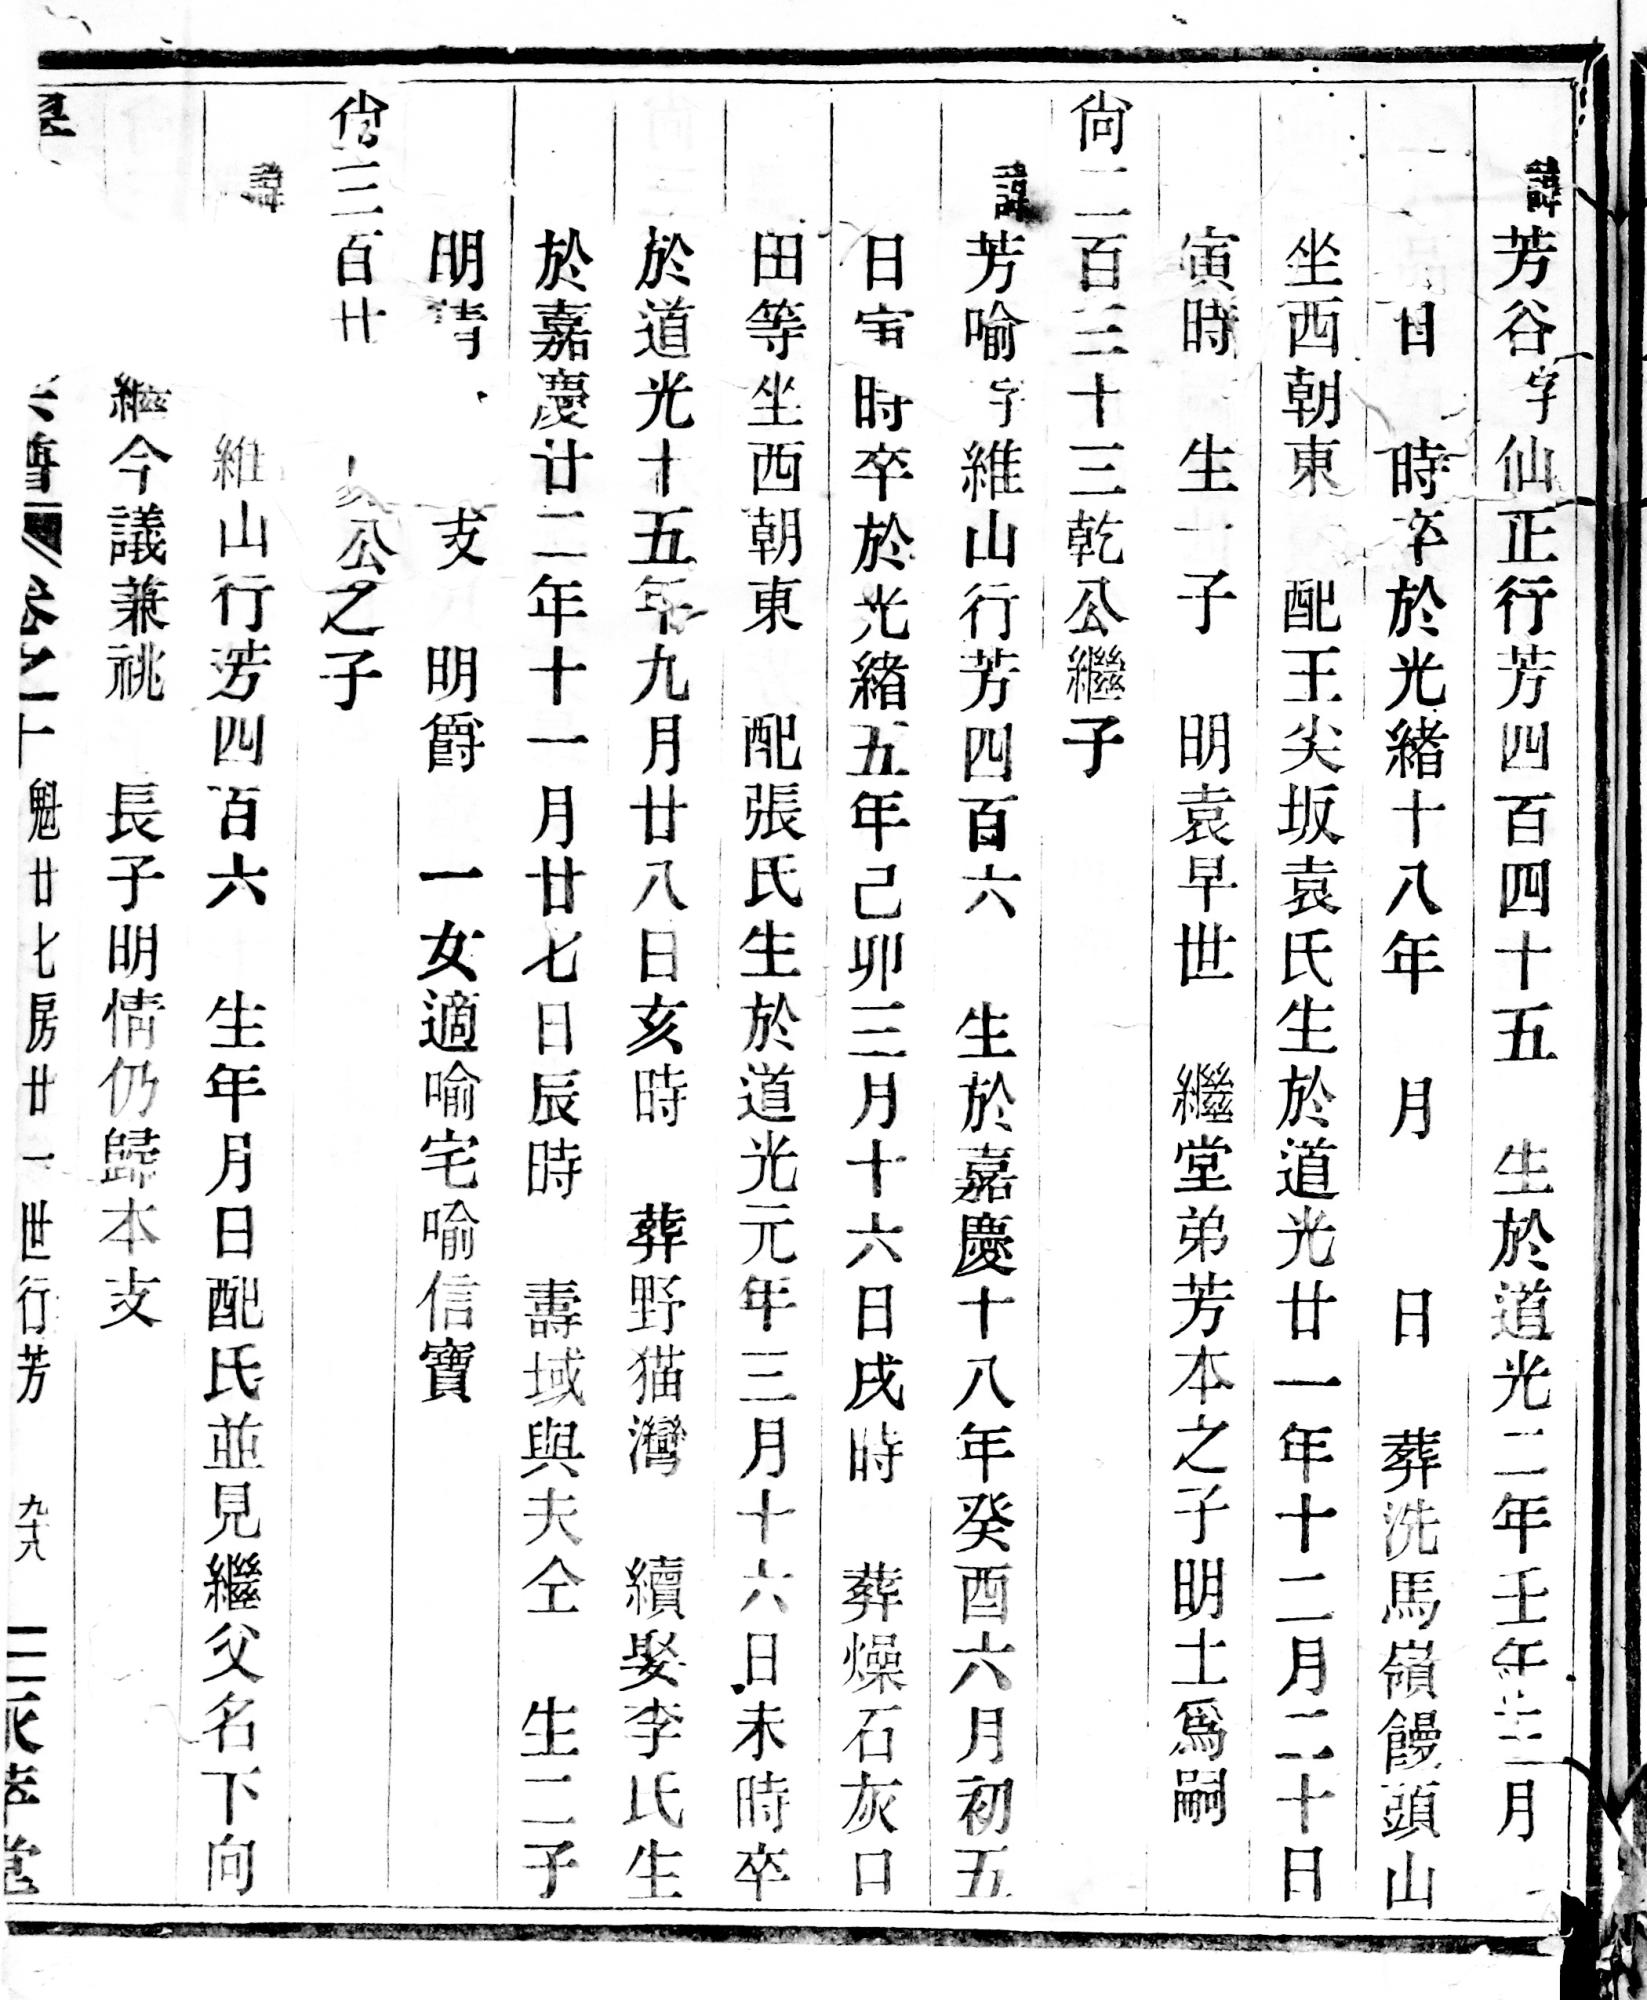 諱芳谷字仙正行芳四百四十五 生於道光二年壬午三月
日 時卒於光緒十八年 月 日 葬洗馬嶺饅頭山
坐西朝東 配王尖坂袁氏生於道光廿一年十二月二十日
寅時 生一子 明袁早世 繼堂弟芳本之子明士爲嗣
尙二百三十三乾公繼子
諱芳喻字維山行芳四百六 生於嘉慶十八年癸酉六月初五
日 時卒於光緒五年己卯三月十六日戌時 葬燥石灰口
田等坐西朝東 配張氏生於道光元年三月十六日未時卒
於道光十五年九月廿八日亥時 葬野猫灣 續娶李氏生
於嘉慶廿二年十一月廿七日辰時 壽域與夫仝 生二子
明 支 明爵 一女適喻宅喻信寶
尙三百廿 公之子
諱 維山行芳四百六 生年月日配氏並見繼父名下向
繼今議兼祧 長子明情仍歸本支
譜 卷之十 魁廿七房廿一世行芳 九八 堂